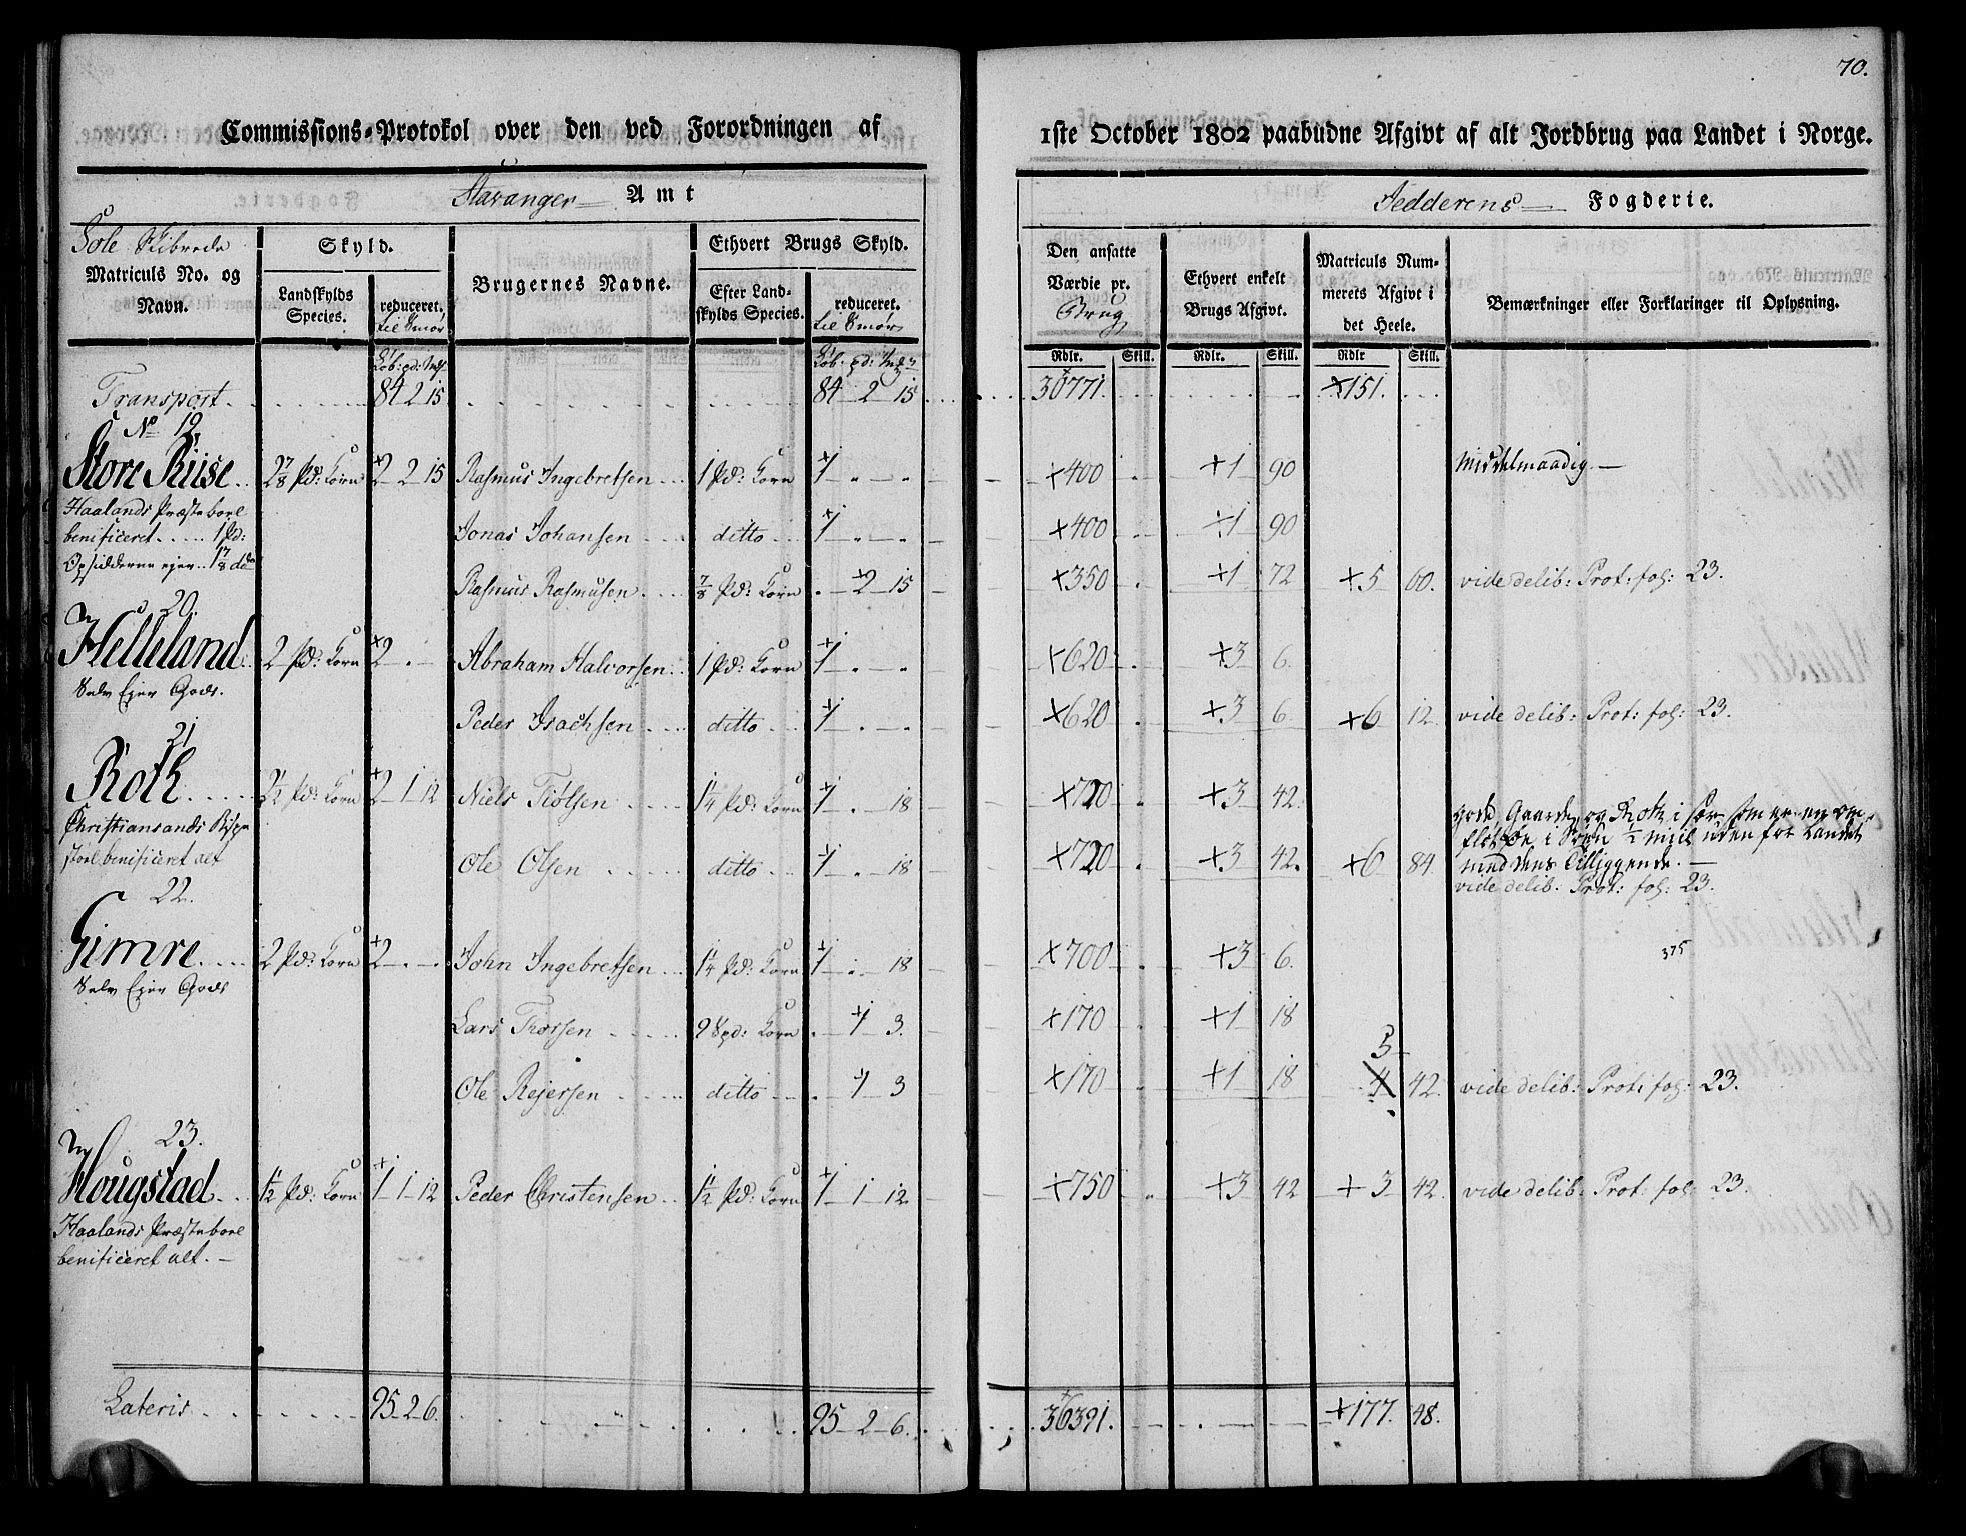 70.
Commissions-Protokol over den ved Forordningen af 1ste October 1802 paabudne Afgivt af alt Jordbrug paa Landet i Norge.
Stavanger Amt
Jedderens Fogderie.
Sole Skibrede
Matriculs No. og Navn.
Skyld.
Landskylds Species.
reduceret.
til Smør
Brugernes Navne.
Ethvert Brugs Skyld.
Efter Landskylds Species.
reduceret.
til Smør
Den ansatte Værdie pr.
Brug
Ethvert enkelt Brugs Afgivt.
Matriculs Nummerets Afgivt i det Heele.
Bemærkninger eller Forklaringer til Oplysning.
Rdlr. Skill. Rdlr. Skill. Rdlr Skill.
Transport 84 2 15 84 2 15 30771. +151.
No 19.
Store Riise 2 7/8 Pd: Korn 2 2 15 Rasmus Ingebretsen 1 Pd: Korn 1 +400 +1 90 Middelmaadig.
Haalands Præstebord
benificeret 1 Pd: Jonas Johansen ditto 1 +400 +1 90
Opsidderne ejer 1 7/8 do Rasmus Rasmusen 7/8 Pd: Korn 2 15 +350 +1 72 +5 60. vide delib: Prot: fol: 23.
20.
Helleland 2 Pd: Korn 2 Abraham Halvorsen 1 Pd: Korn 1 +620 +3 6.
Selv Ejer Gods.
Peder Isachsen ditto 1 +620 +3 6 +6 12. vide delib: Prot: fol: 23.
21
Roth 2 1/2 Pd: Korn 2 1 12 Niels Tiølsen 1 1/4 Pd: Korn 1 18 +720 +3 42.
Christiansands Bispe
stoel benificeret alt Ole Olsen ditto 1 18 +720 +3 42. +6 84
gode Gaarde, og Roth i sær som er en
i 1/2 Miil uden for Landet
med dens Tilliggende.
vide delib. Prot: fol: 23.
22.
Gimre 2 Pd: Korn 2 John Ingebretsen 1 1/4 Pd: Korn 1 18 +700 +3 6. 375
Selv Ejer Gods
Lars Thorsen 9 Spd: Korn 1 3. +170 +1 18
5
Ole Rejersen ditto 1 3 +170 +1 18 4 42. vide delib: Prot: fol: 23.
23.
Hougstad 1 1/2 Pd: Korn 1 1 12 Peder Christensen 1 1/2 Pd: Korn 1 1 12 +750 +3 42 +3 42. vide delib: Prot: fol: 23.
Haalands Præstebord
benificeret alt.
Lateris 95 2 6. 95 2 6. 36391. +177. 48.